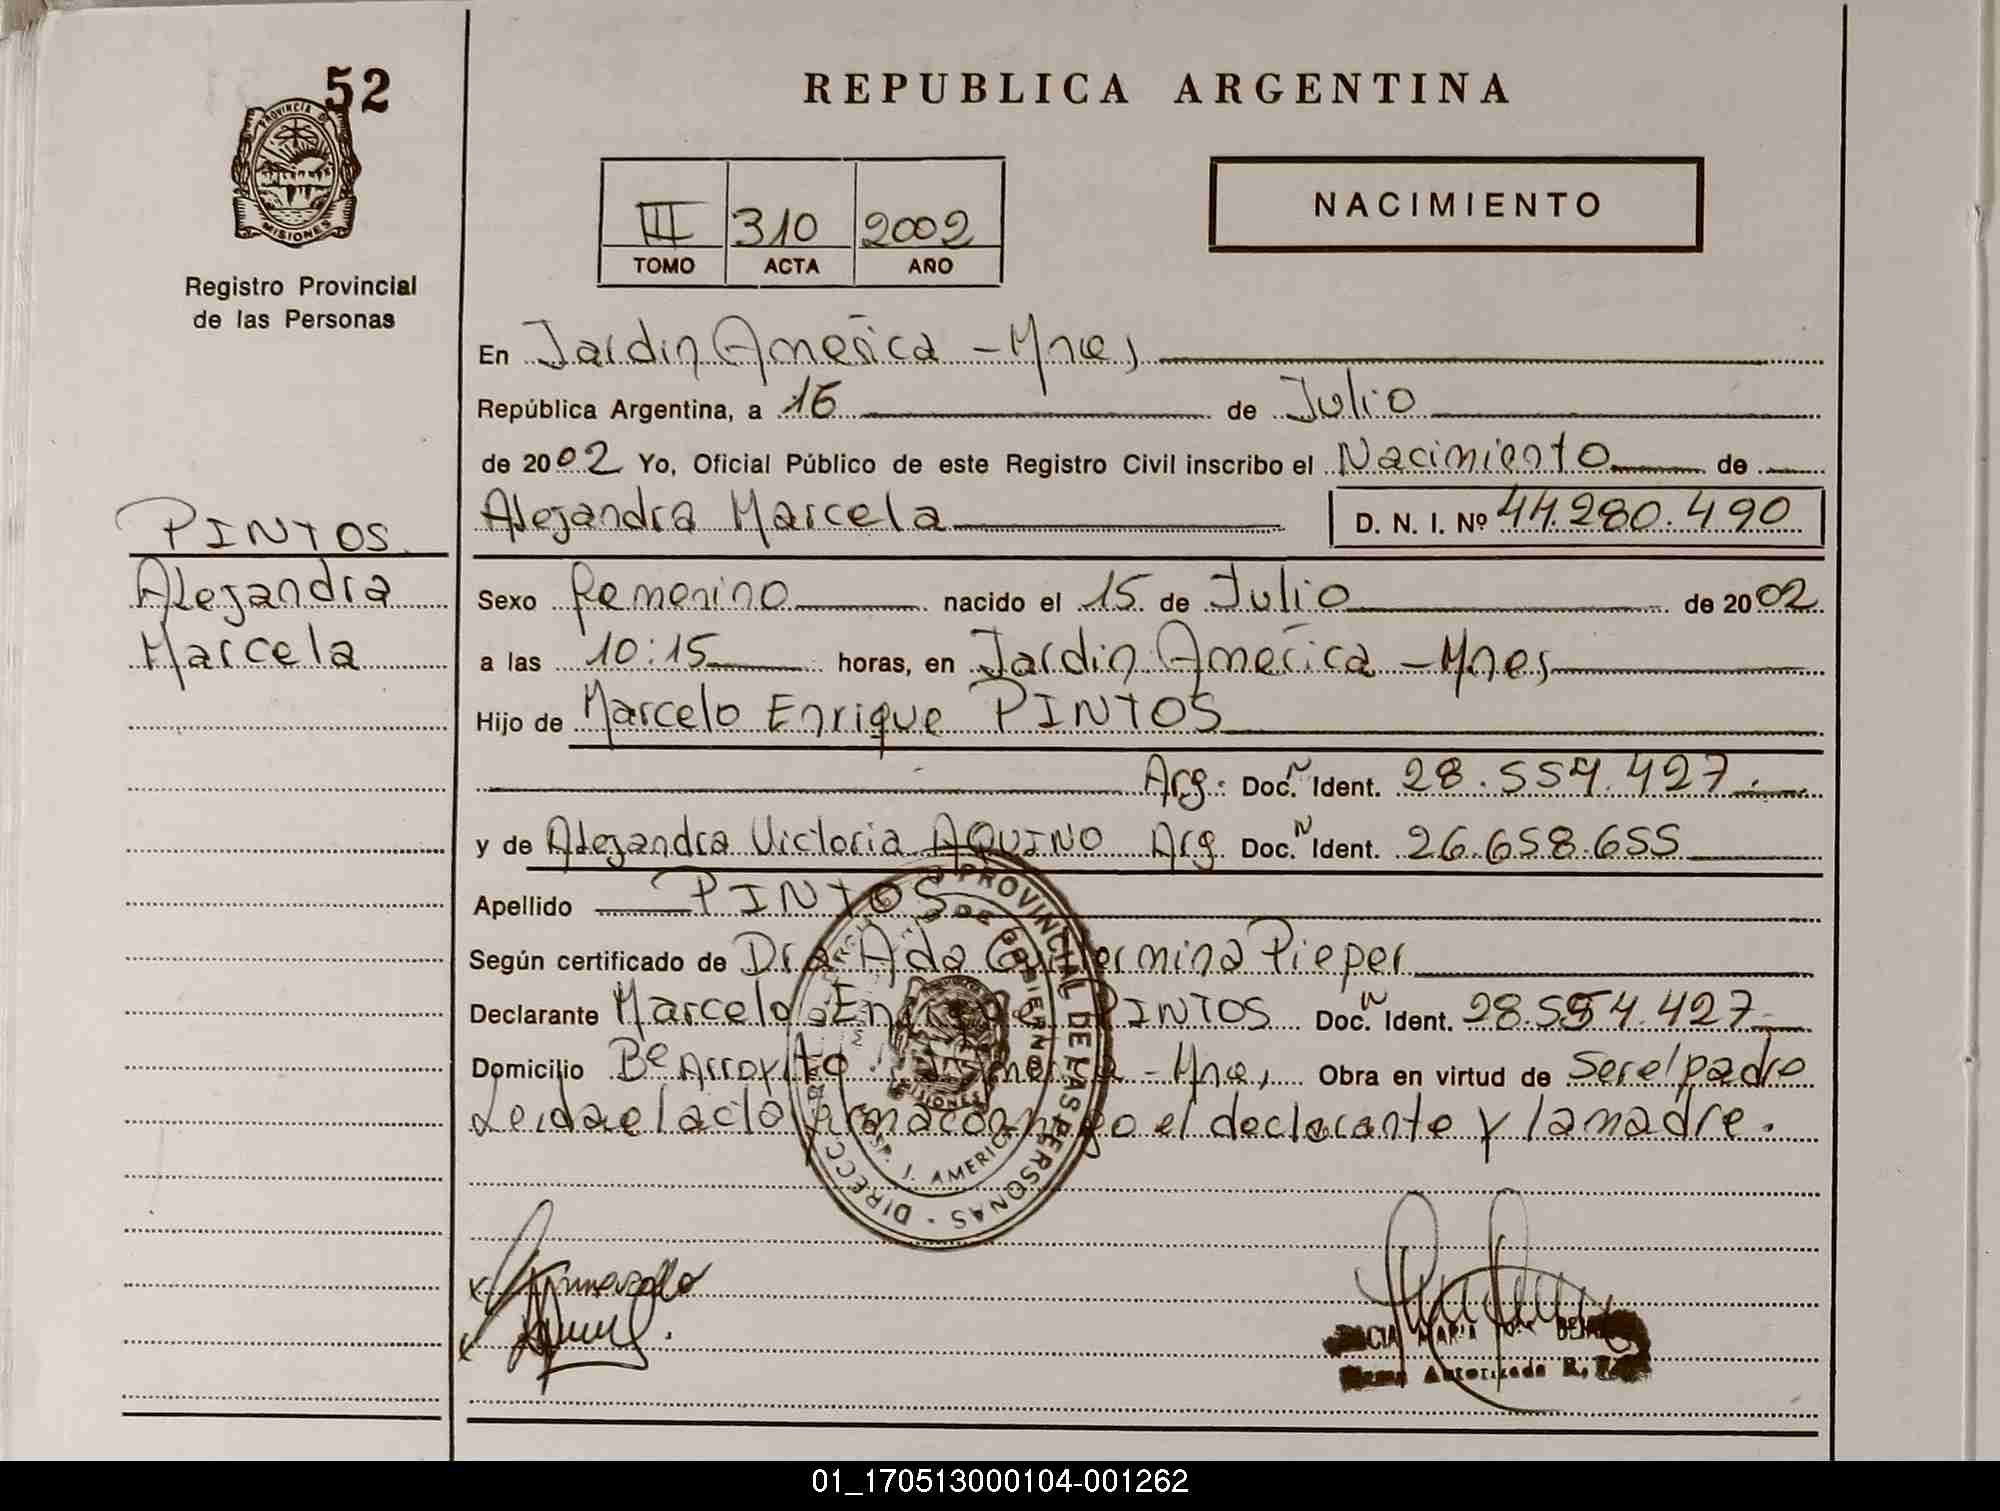 52
PROVINCIA DE
MISIONES
Registro Provincial
de las Personas
PINTOS
Alejandra
Marcela
REPUBLICA ARGENTINA
III 310 2002
TOMO ACTA AÑO
NACIMIENTO
En Jardin America - Mnes,
República Argentina, a 16 de Julio
de 2002 Yo, Oficial Público de este Registro Civil inscribo el Nacimiento de
Alejandra Marcela D. N. I. Nº 44.280.490
Sexo femenino nacido el 15 de Julio de 2002
a las 10:15 horas, en Jardin America - Mnes,
Hijo de Marcelo Enrique PINTOS
Arg. Doc. N Ident. 28.554.427.
y de Alejandra Victoria AQUINO Arg Doc. N Ident. 26.658.655
Apellido PINTOS
Según certificado de Dra Ada Guillermina Pieper
Declarante Marcelo Enrique PINTOS Doc. N Ident. 28.554.427
Domicilio Bº Arroyito J. America - Mnes, Obra en virtud de ser el padre
Leida el acta firma conmigo el declarante y la madre.
PROVINCIAL DE LAS PERSONAS - DIRECC
DE GOBIERNO
J. AMERICA
MISIONES
MARIA
Firma Autorizada R.
01_170513000104-001262